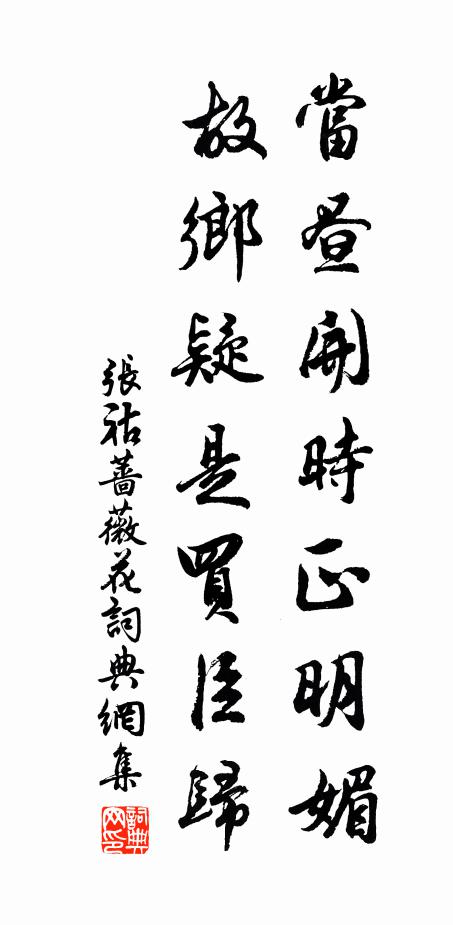 當晝開時正明媚
故鄉疑是買臣歸
張祜薔薇花詞典網集
詞典网印